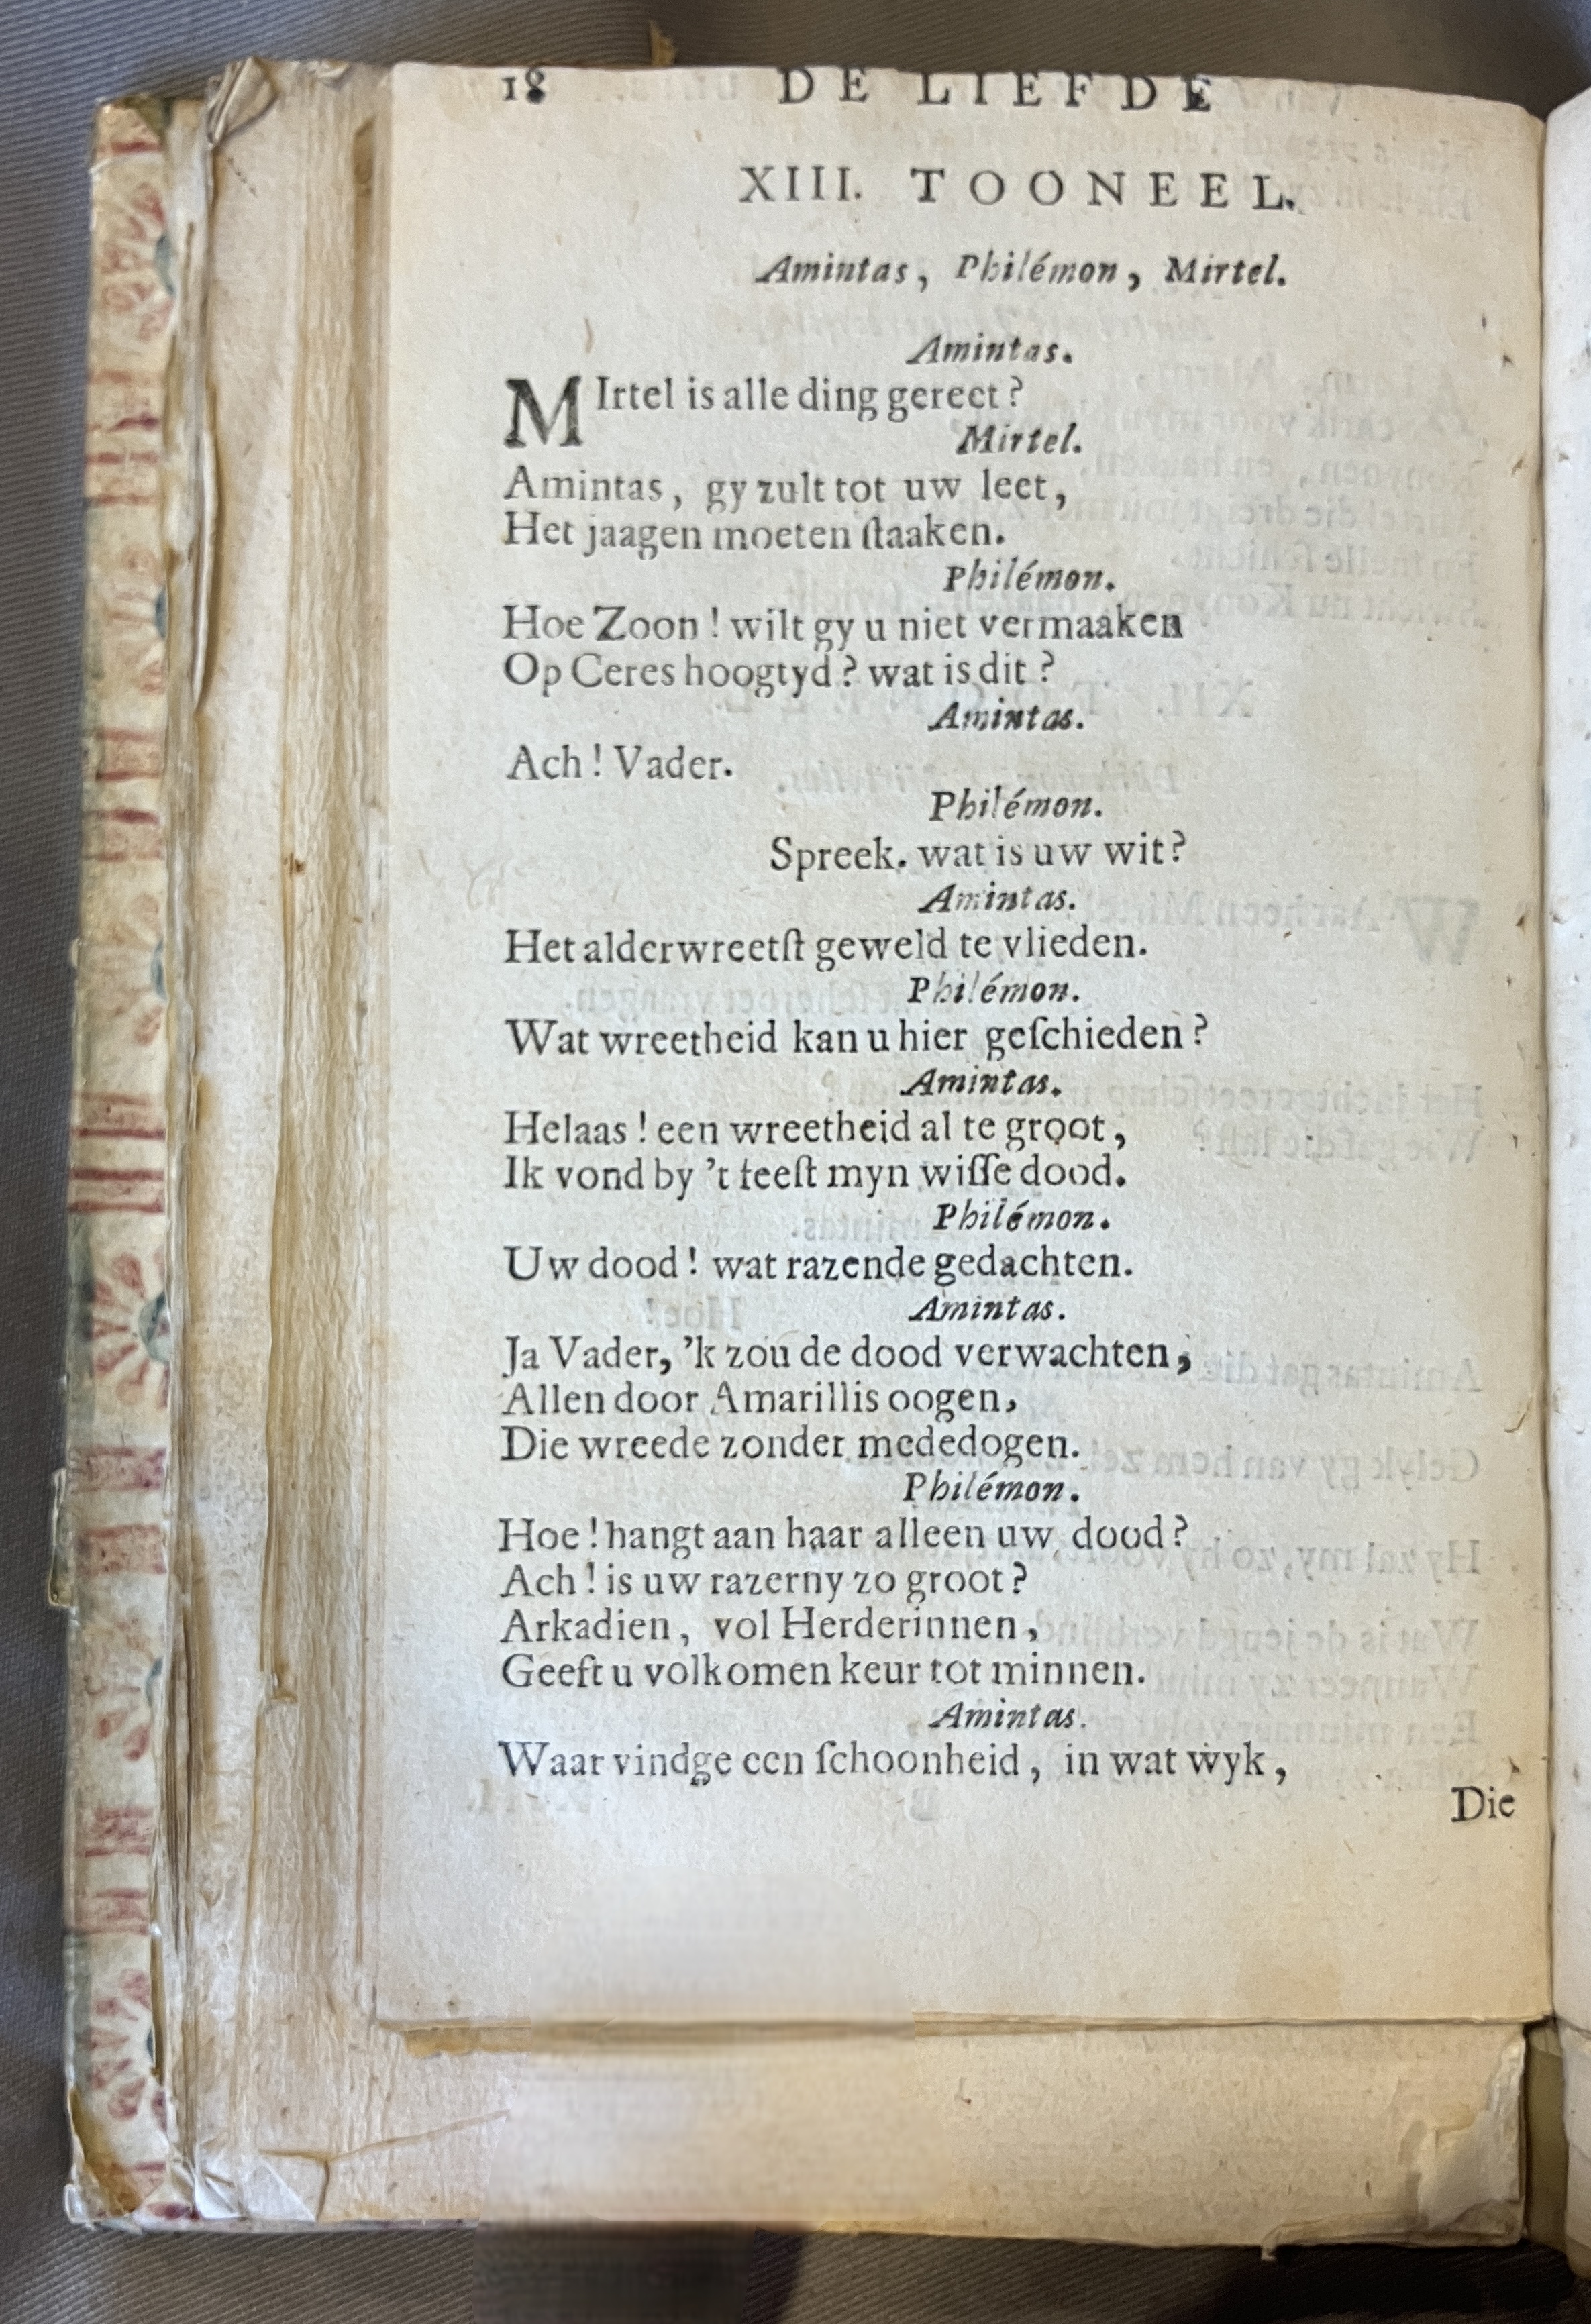 18 DE LIEFDE
XIII. TOONEEL.
Amintas, Philémon, Mirtel.
Amintas.
MIrtel is alle ding gereet?
Mirtel.
Amintas, gy zult tot uw leet,
Het jaagen moeten ſtaaken.
Philémon.
Hoe Zoon! wilt gy u niet vermaaken
Op Ceres hoogtyd? wat is dit?
Amintas.
Ach! Vader.
Philémon.
Spreek. wat is uw wit?
Amintas.
Het alderwreetſt geweld te vlieden.
Philémon.
Wat wreetheid kan u hier geſchieden?
Amintas.
Helaas! een wreetheid al te groot,
Ik vond by 't feeſt myn wiſſe dood.
Philémon.
Uw dood! wat razende gedachten.
Amintas.
Ja Vader, 'k zou de dood verwachten,
Allen door Amarillis oogen,
Die wreede zonder mededogen.
Philémon.
Hoe! hangt aan haar alleen uw dood?
Ach! is uw razerny zo groot?
Arkadien, vol Herderinnen,
Geeft u volkomen keur tot minnen.
Amintas.
Waar vindge een ſchoonheid, in wat wyk,
Die